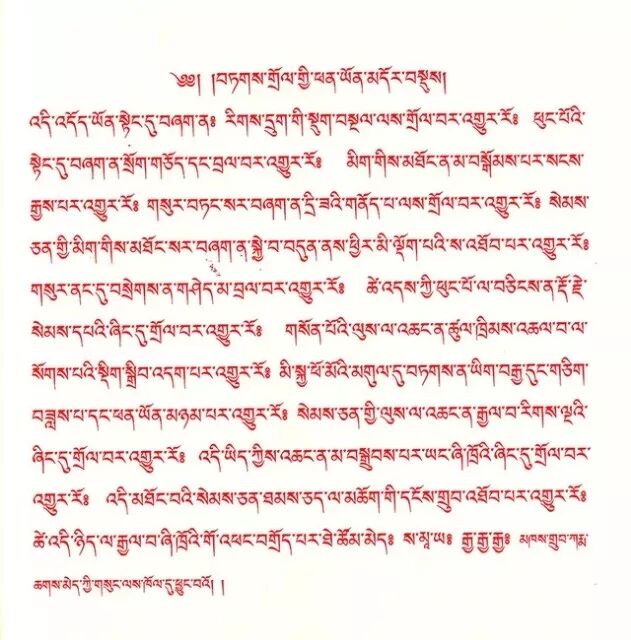 ༄༅། །བཏགས་གྲོལ་གྱི་ཕན་ཡོན་མདོར་བསྡུས།
འདི་འདོད་ཡོན་སྟེང་དུ་བཞག་ན༔ རིགས་དྲུག་གི་སྡུག་བསྔལ་ལས་གྲོལ་བར་འགྱུར་རོ༔ ཕུང་པོའི་
སྟེང་དུ་བཞག་ན་སྲོག་གཅོད་དང་བྲལ་བར་འགྱུར་རོ༔ མིག་གིས་མཐོང་ན་མ་བསྒོམས་པར་སངས་
རྒྱས་པར་འགྱུར་རོ༔ གསུར་བཏང་སར་བཞག་ན་དྲི་ཟའི་གནོད་པ་ལས་གྲོལ་བར་འགྱུར་རོ༔ སེམས་
ཅན་གྱི་མིག་གིས་མཐོང་སར་བཞག་ན་སྐྱེ་བ་བདུན་ནས་ཕྱིར་མི་ལྡོག་པའི་ས་འཐོབ་པར་འགྱུར་རོ༔
གསུར་ནང་དུ་བསྲེགས་ན་གཤེད་མ་བྲལ་བར་འགྱུར་རོ༔ ཚེ་འདས་ཀྱི་ཕུང་པོ་ལ་བཅིངས་ན་རྡོ་རྗེ་
སེམས་དཔའི་ཞིང་དུ་གྲོལ་བར་འགྱུར་རོ༔ གསོན་པོའི་ལུས་ལ་འཆང་ན་ཚུལ་ཁྲིམས་འཆལ་བ་ལ་
སོགས་པའི་སྡིག་སྒྲིབ་འདག་པར་འགྱུར་རོ༔ མི་སྐྱ་ཕོ་མོའི་མགུལ་དུ་བཏགས་ན་ཡིག་བརྒྱ་དུང་གཅིག་
བཟླས་པ་དང་ཕན་ཡོན་མཉམ་པར་འགྱུར་རོ༔ སེམས་ཅན་གྱི་ལུས་ལ་འཆང་ན་རྒྱལ་བ་རིགས་ལྔའི་
ཞིང་དུ་གྲོལ་བར་འགྱུར་རོ༔ འདི་ཡིད་ཀྱིས་འཆང་ན་མ་བསྒྲུབས་པར་ཡང་ཞི་ཁྲོའི་ཞིང་དུ་གྲོལ་བར་
འགྱུར་རོ༔ འདི་མཐོང་བའི་སེམས་ཅན་ཐམས་ཅད་ལ་མཆོག་གི་དངོས་གྲུབ་འཐོབ་པར་འགྱུར་རོ༔
ཚེ་འདི་ཉིད་ལ་རྒྱལ་བ་ཞི་ཁྲོའི་གོ་འཕང་བགྲོད་པར་ཐེ་ཚོམ་མེད༔ ས་མཱ་ཡ༔ རྒྱ་རྒྱ་རྒྱ༔ མཁས་གྲུབ་ཀརྨ་
ཆགས་མེད་ཀྱི་གསུང་ལས་ཁོལ་དུ་ཕྱུང་བའོ། །